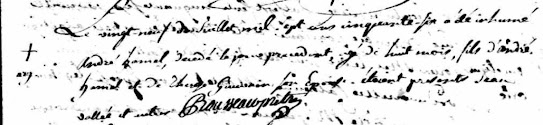 Le vingt neuf de Juillet mil sept cens cinquante six a été inhumé
André hamel, decedé le jour precedent, agé de huit mois, fils d'andré
hamel et de Gauvain son Epouse. étoient presents Jean
vallée et autres Brousseau ptre